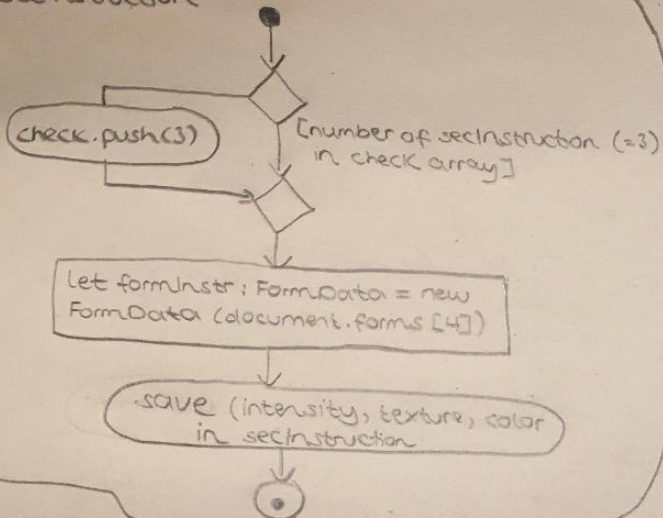 check.push(3)
[number of secInstruction (=3)
in check array]
let formInstr: FormData = new
FormData (document.forms [4])
save (intensity, texture, color
in secInstruction